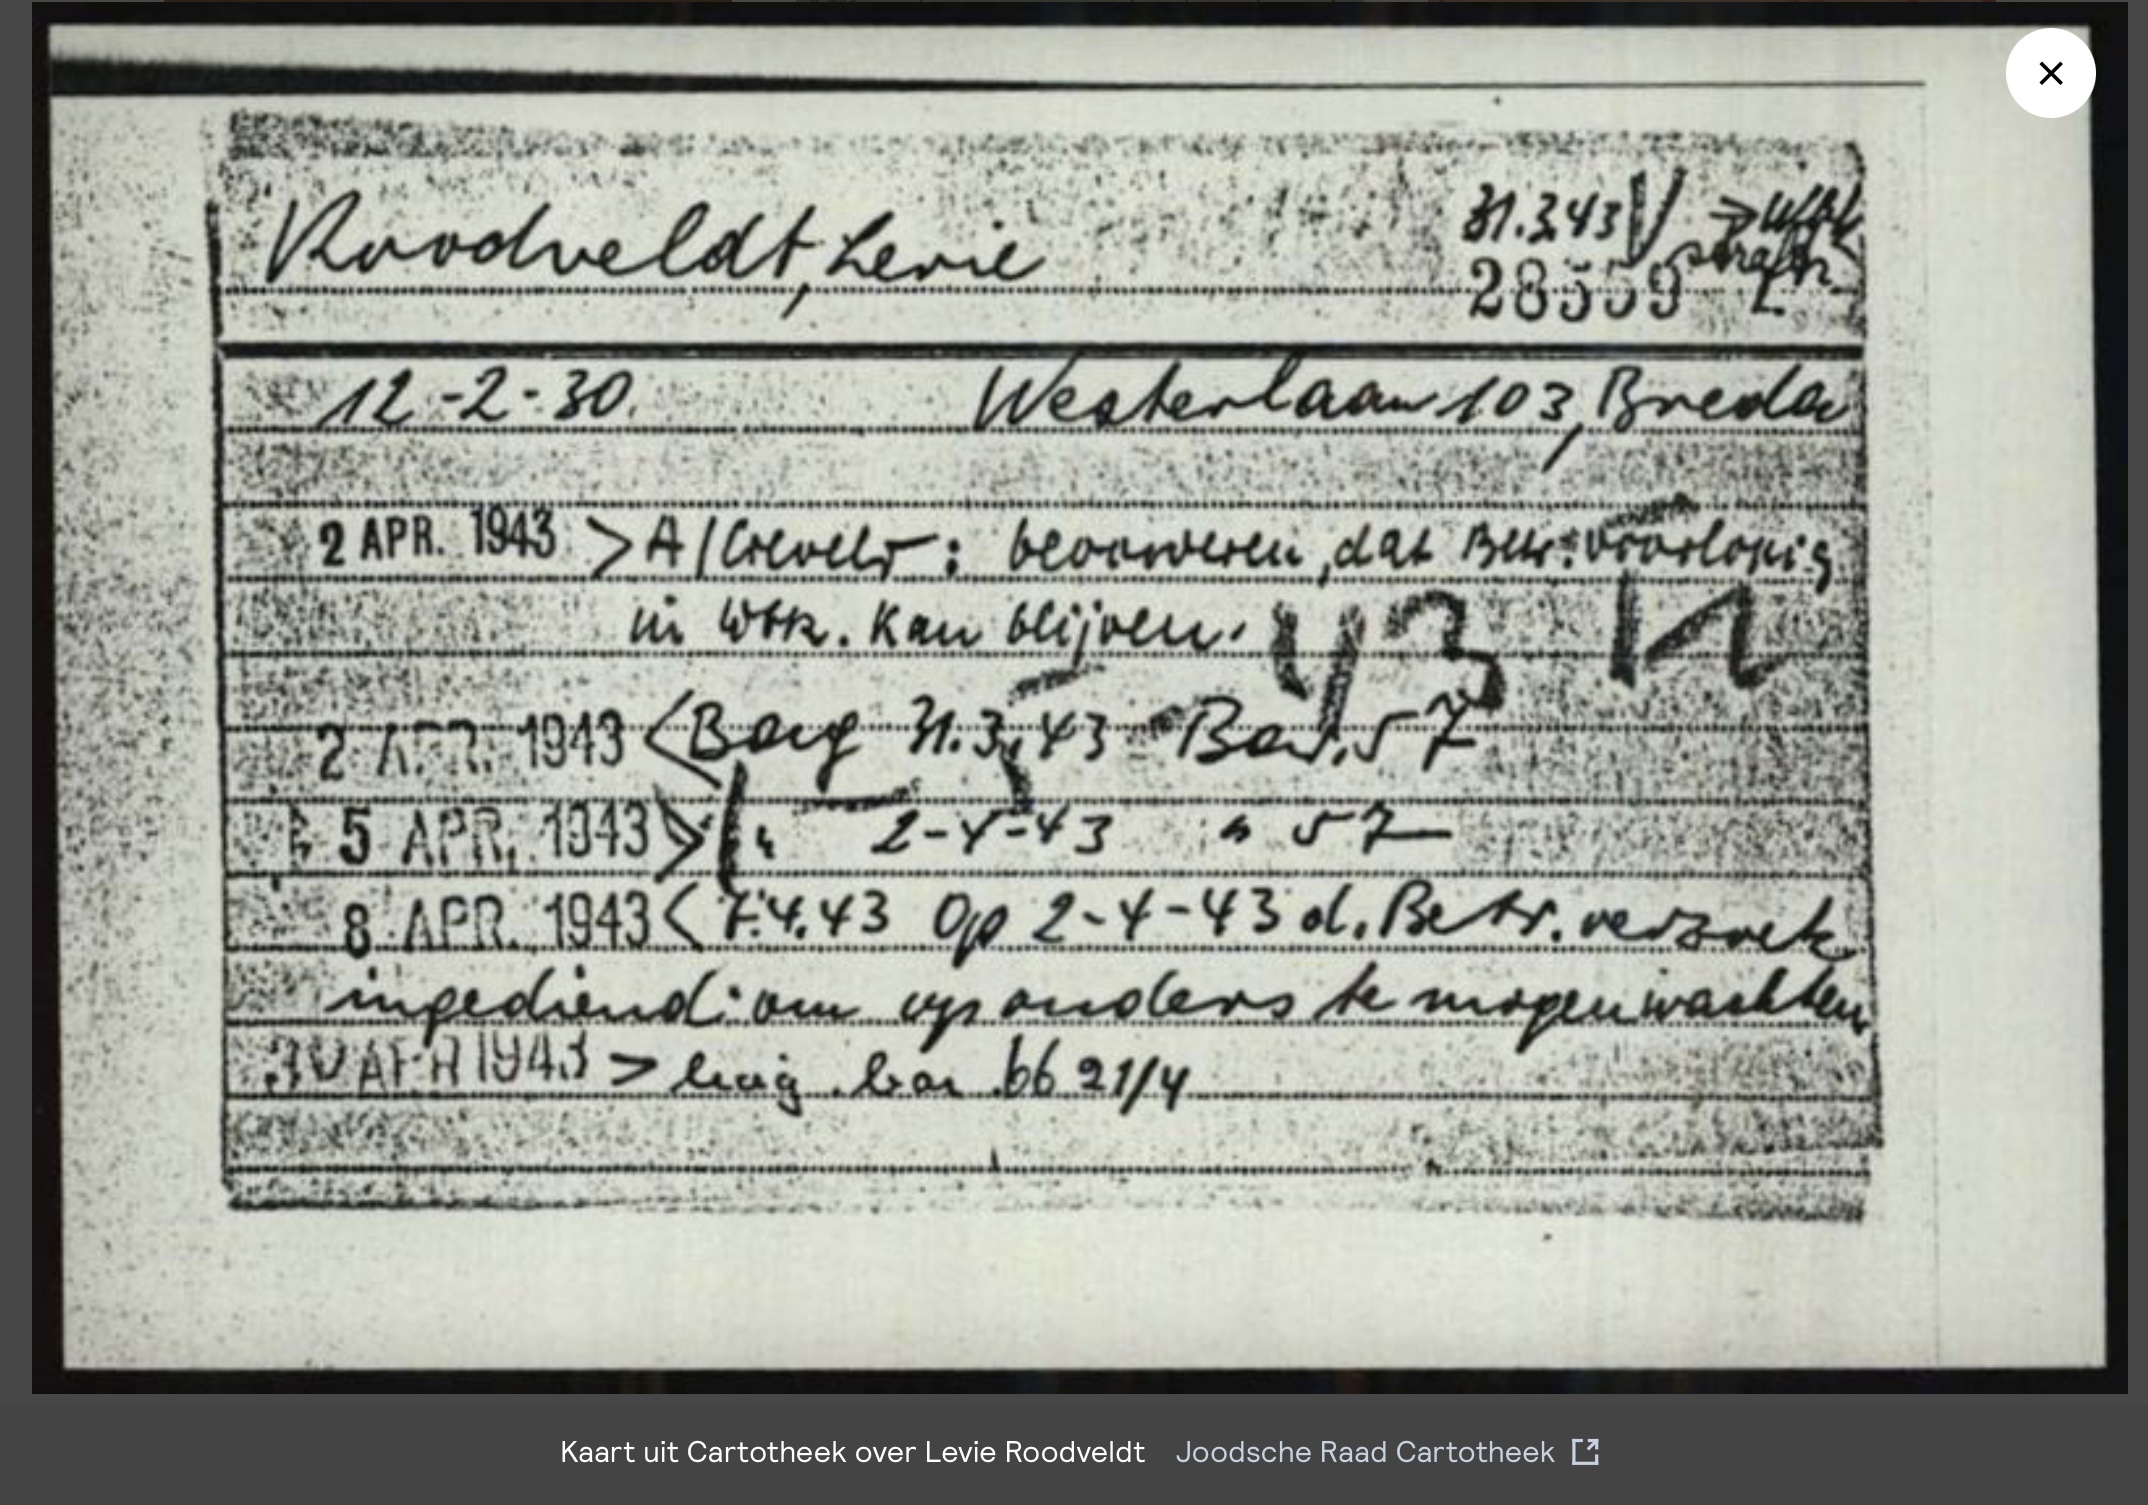 Roodveldt, Levie
31.3.43 → Wbk
28559 strafk.
12-2-30 Westerlaan 103, Breda
2 APR. 1943 > A/Creveld: bevorderen, dat Betr. voorlopig
in Wbk. kan blijven.
43
2 APR. 1943 < Barg 31.3.43 Bar. 57
5 APR. 1943 > " 2-4-43 " 57
8 APR. 1943 < 7.4.43 Op 2-4-43 d. Betr. verzoek
ingediend om op ouders te mogen wachten
30 APR 1943 > bar 66 21/4
Kaart uit Cartotheek over Levie Roodveldt Joodsche Raad Cartotheek